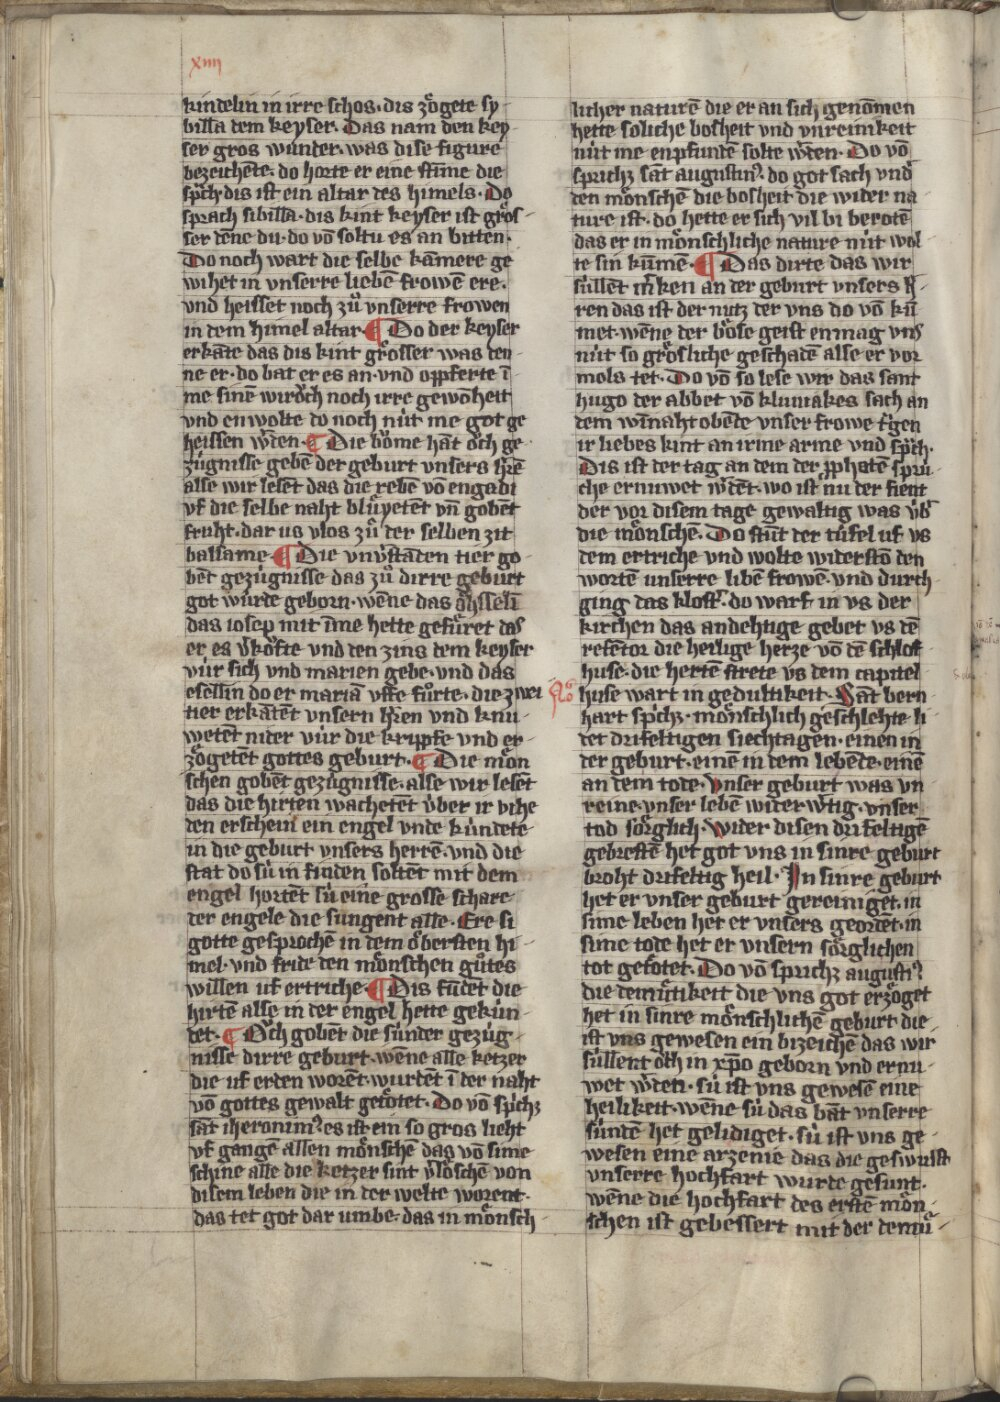 xiiij
kindelin in irre schos· dis zoͤgete sy-
billa dem keyser· Das nam den key
ser gros wunder· was dise figure
bezeichēte· do horte er eine stīme die
sp̄ch· dis ist ein altar des himels· Do
sprach sibilla· dis kint keyser ist groͤs-
ser dēne du· do vō soltu es an bitten·
Do noch wart die selbe kāmere ge
wihet in vnserre liebē frowē ere·
vnd heisset noch zuͦ vnserre frowen
in dem himel altar· ¶ Do der keyser
erkāte das dis kint groͤsser was den-
ne er· do bat er es an· vnd opferte ī-
me sinē wiroͮch noch irre gewōheit
vnd enwolte do noch nüt me got ge
heissen w̄den· ¶ Die boͮme hāt oͮch ge-
zügnisse gebē der geburt vnsers h̄rē
alse wir lesēt das die rebē vō engadi
vf die selbe naht bluͤyetēt vn̄ gobēt
fruht· dar us vlos zuͦ der selben zit
balsame· ¶ Die vnv̓stāden tier go-
bēt gezügnisse das zuͦ dirre geburt
got wurde geborn· wēne das oͤhsselī
das iosep mit īme hette gefuͤret das
er es v̓koͮfte vnd den zins dem keyser
vür sich vnd marien gebe· vnd das
esellin do er mariā vffe fuͦrte· die zwei
tier erkātēt vnsern h̄ren vnd knu-
wetēt nider vür die krippfe vnd er-
zoͤgetēt gottes geburt· ¶ Die moͤn
schen gobēt gezügnisse· alse wir lesēt
das die hirten wachetēt v̓ber ir vihe
den erschein ein engel vnde kündete-
in die geburt vnsers herrē· vnd die
stat do sü in finden soltēt mit dem
engel hortēt sü eine grosse schare
der engele die sungent alle· Ere si
gotte gesprochē in dem oͤbersten hi-
mel· vnd fride den moͤnschen guͦtes
willen uf ertriche· ¶ Dis fūdēt die
hirtē alse in der engel hette gekün-
det· ¶ Oͮch gobēt die sünder gezüg-
nisse dirre geburt· wēne alle ketzer
die uf erden worēt· wurdēt ī der naht
vō gottes gewalt getoͤtet· Do vō sp̄chȝ
sāt iheronim⁹ es ist ein so gros lieht
vf gangē allen moͤnschē das vō sime
schine alle die ketzer sint v̓loͤschē von
disem leben die in der welte worent·
das tet got dar umbe· das in moͤnsch-
licher naturē die er an sich genōmen
hette soliche bosheit vnd vnreinikeit
nüt me enpfundē solte w̄den· Do vō
sprichȝ sāt augustin⁹· do got sach vnd̓
den moͤnschē die bosheit die wider na
ture ist· do hette er sich vil bi berotē
das er in moͤnschliche nature nüt wol
te sin kūmē· ¶ Das dirte das wir
süllent m̓ken an der geburt vnsers h̄-
ren das ist der nutz der vns do vō kū
met· wēne der boͤse geist enmag vns
nüt so groͤsliche geschadē alse er vor
mols tet· Do vō so lese wir das sant
hugo der abbet vō kluniakes sach an
dem wīnaht obēde vnser frowe t̓gen
ir liebes kint an irme arme vnd sp̄ch·
Dis ist der tag an dem der pphetē sprü
che ernuwet w̄dēt· wo ist nu der fient
der vor disem tage gewaltig was v̓b̓
die moͤnschē· Do stūt der tüfel uf vs
dem ertriche vnd wolte widerstō den
wortē unserre libē frowē· vnd durch-
ging das klost̓· do warf in vs der
kirchen das andehtige gebet vs dē
refētor die heilige herze vō dē schlof
huse· die hertē strete vs dem capitel
huse wart in gedultikeit· Sāt bern
hart sp̓ichȝ· moͤnschlich geschlehte li
det drifeltigen siechtagen· einen in
der geburt· einē in dem lebēde· einē
an dem tode· Vnser geburt was vn
reine· vnser lebē wider w̄tig· vnser
tod sorglich· Wider disen drifeltigē
gebrestē het got vns in sinre geburt
broht drifeltig heil· In sinre geburt
het er vnser geburt gereiniget· in
sime leben het er vnsers geordēt· in
sime tode het er vnsern sorglichen
tot getotet· Do vō sprichȝ augusti⁹
die demuͤtikeit die vns got erzoͤget
het in sinre moͤnschlichē geburt die
ist vns gewesen ein bizeichē das wir
süllent oͮch in xp̄o geborn vnd ernu-
wet w̄den· sü ist vns gewesē eine
heilikeit· wēne sü das bāt vnserre
sündē het gelidiget· sü ist vns ge-
wesen eine arzenie das die geswulst
vnserre hochfart wurde gesunt·
wēne die hochfart des erstē moͤn-
schen ist gebessert mit der demuͤ-